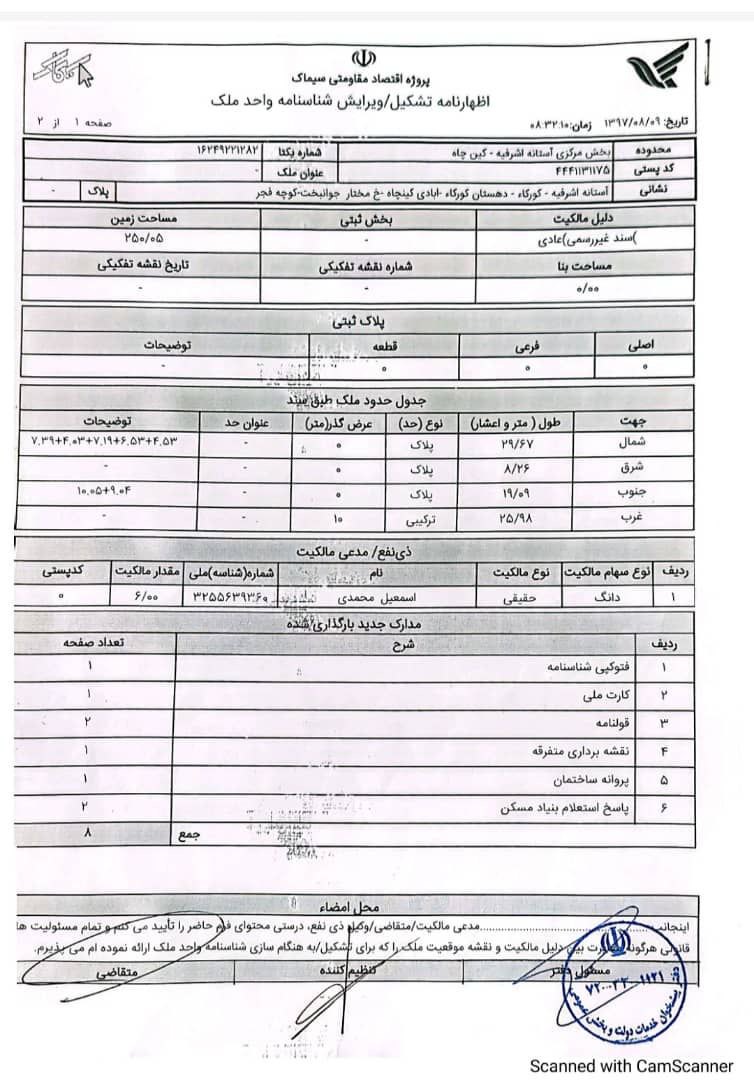 پروژه اقتصاد مقاومتی سیماک
اظهارنامه تشکیل/ویرایش شناسنامه واحد ملک
تاریخ: ۱۳۹۷/۰۸/۰۹ زمان: ۰۸:۳۲:۱۰
صفحه ۱ از ۲
محدوده بخش مرکزی آستانه اشرفیه - کین چاه شماره یکتا ۱۶۲۴۹۲۲۱۲۸۲
کد پستی ۴۴۴۱۱۳۱۱۷۵ عنوان ملک -
نشانی آستانه اشرفیه - کورکاء - دهستان کورکاء -ابادی کینچاه -خ مختار جوانبخت-کوچه فجر پلاک -
دلیل مالکیت بخش ثبتی مساحت زمین
(سند غیررسمی)عادی - ۲۵۰/۰۵
مساحت بنا شماره نقشه تفکیکی تاریخ نقشه تفکیکی
۰/۰۰ - -
پلاک ثبتی
اصلی فرعی قطعه توضیحات
۰ ۰ ۰ -
جدول حدود ملک طبق سند
جهت طول ( متر و اعشار) نوع (حد) عرض گذر(متر) عنوان حد توضیحات
شمال ۲۹/۶۷ پلاک ۰ - ۷.۳۹+۴.۰۳+۷.۱۹+۶.۵۳+۴.۵۳
شرق ۸/۲۶ پلاک ۰ - -
جنوب ۱۹/۰۹ پلاک ۰ - ۱۰.۰۵+۹.۰۴
غرب ۲۵/۹۸ ترکیبی ۱۰ - -
ذی‌نفع/ مدعی مالکیت
ردیف نوع سهام مالکیت نوع مالکیت نام شماره(شناسه)ملی مقدار مالکیت کدپستی
۱ دانگ حقیقی اسمعیل محمدی ۳۲۵۵۶۳۹۳۶۹ ۶/۰۰ ۰
مدارک جدید بارگذاری شده
ردیف شرح تعداد صفحه
۱ فتوکپی شناسنامه ۱
۲ کارت ملی ۱
۳ قولنامه ۲
۴ نقشه برداری متفرقه ۱
۵ پروانه ساختمان ۱
۶ پاسخ استعلام بنیاد مسکن ۲
جمع ۸
محل امضاء
اینجانب..............................مدعی مالکیت/متقاضی/وکیل ذی نفع، درستی محتوای فرم حاضر را تأیید می کنم و تمام مسئولیت ها
قانونی هرگونه بین دلیل مالکیت و نقشه موقعیت ملک را که برای تشکیل/به هنگام سازی شناسنامه واحد ملک ارائه نموده ام می پذیرم.
مسئول دفتر تنظیم کننده متقاضی
دفتر پیشخوان خدمات دولت و بخش عمومی
Scanned with CamScanner